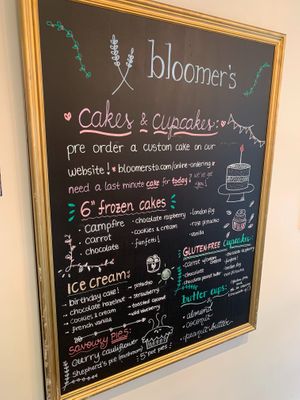 bloomer's
cakes & cupcakes:
pre order a custom cake on our
website! bloomersto.com/online-ordering
need a last minute cake for today? we've got you!
6" frozen cakes
· campfire
· carrot
· chocolate
· chocolate raspberry
· cookies & cream
· funfetti
· london fog
· rose pistachio
· vanilla
GLUTEN-FREE cupcakes:
· chocolate
· chocolate raspberry
ICE cream:
· birthday cake!
· chocolate hazelnut
· cookies & cream
· french vanilla
· pistachio
· strawberry
· toasted coconut
· wild blueberry
butter cups:
· almond
· coconut
· peanut butter
savoury pies:
curry cauliflower
shepherd's pie (mushroom)
5" pot pies